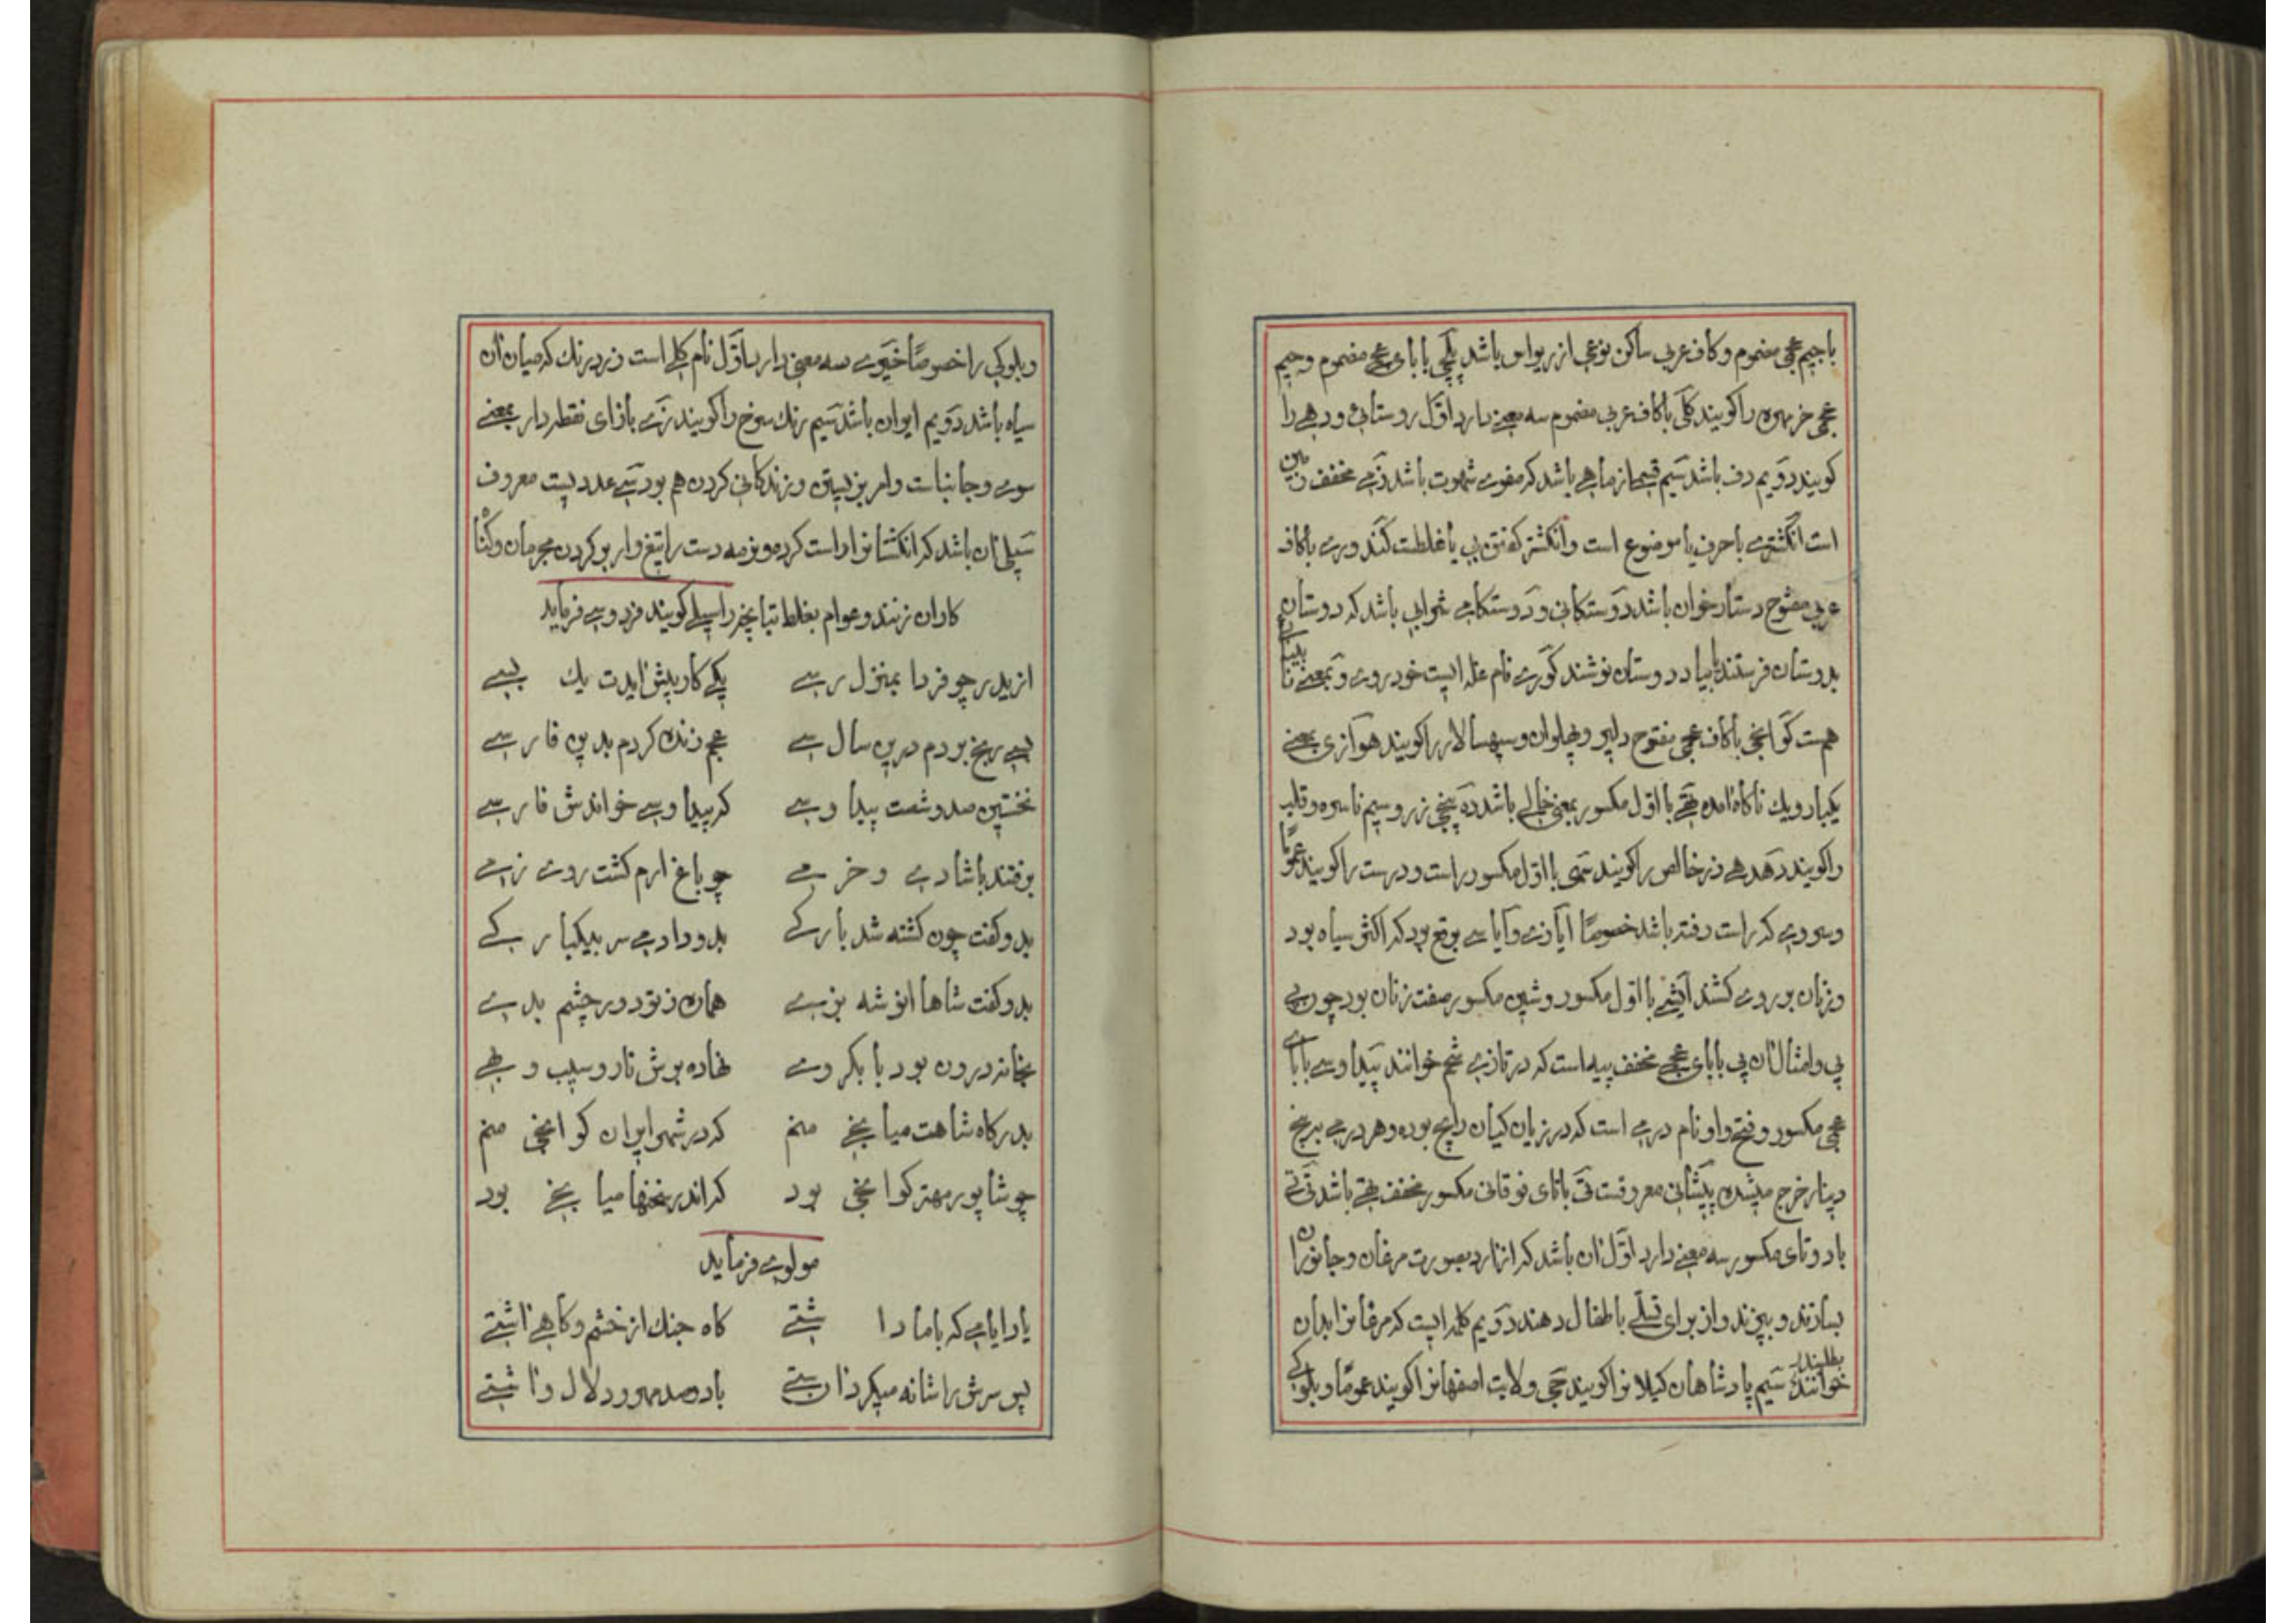 با جیم عجمی مضموم و کاف عربی ساکن نوعی از ریواس باشد پلچی با بای عجمی مضموم و جیم
عجمی خرمهره را کویند کلی با کاف عربی مضموم سه معنی دارد اول روستائی و دهی را
کویند دویم دف باشد سیم قسمی از ماهی باشد که مقوی شهوت باشد زمی مخفف زمین
است انکشتری با حرف یا موضوع است و انکشتر کفتن بی یا غلطست کندوری با کاف
عربی مفتوح دستارخوان باشد دوستکانی و دوستکامی شرابی باشد که دوستان
بدوستان فرستند یا بیاد دوستان نوشند کوری نام غله ایست خودروی و بمعنی نابینائی
هست کوانجی با کاف عجمی مفتوح دلیر و پهلوان و سپهسالار را کویند هوازی بمعنی
یکبار و یک ناکاه امده تهی با اول مکسور بمعنی خالی باشد ده پنجی زر و سیم ناسره و قلب
را کویند دهدهی زر خالص را کویند سمی با اول مکسور راست و درست را کویند عموما
و سروی که راست رفته باشد خصوصا ایازی و ایاسی برقع بود که اکثر سیاه بود
و زنان بر روی کشند ایشی با اول مکسور و شین مکسور صفت زنان بود چون بی
بی و امثال ان پی با بای عجمی مخفف پیه است که در تازی شحم خوانند پیداوسی با بای
عجمی مکسور و فتح واو نام درمی است که در زمان کیان رایج بوده و هر درمی به پنج
دینار خرج میشده پیشانی معروفست تی با تای فوقانی مکسور مخفف تهی باشد تی تی
با دو تای مکسور سه معنی دارد اول ان باشد که از ارد بصورت مرغان و جانوران
بسازند و بپزند و از برای تسلی باطفال دهند دویم کلمه ایست که مرغانرا بدان
خوانند بطلبند سیم پادشاهان کیلانرا کویند جی ولایت اصفهانرا کویند عموما و بلوکی
و بلوکی را خصوصا خیری سه معنی دارد اول نام کلی است زرد رنک که میان ان
سیاه باشد دویم ایوان باشد سیم رنک سرخ را کویند زی با زای نقطه دار بمعنی
سوی و جانبست و امر بزیستن و زندکانی کردن هم بود سی عددیست معروف
سیلی ان باشد که انکشتانرا راست کرده و نرمه دست را تیغ وار بر کردن مجرمان و کنا
کاران زنند و عوام بغلط تپانچه را سیلی کویند فردوسی فرماید
از یدر چو فردا بمنزل رسی یکی کار پیش ایدت یک بسی
بسی رنج بردم درین سال سی عجم زنده کردم بدین فارسی
نخستین صد و شصت پیداوسی که پیداوسی خواندش فارسی
برفتند با شادی و خرمی چو باغ ارم کشت روی زمی
بدو کفت چون کشته شد بارکی بدو داد می سر بیکبارکی
بدو کفت شاها انوشه بزی همان ز تو دور چشم بدی
بخانه درون بود با یکروی نهاده برش نار و سیب و بهی
بدرکاه شاهت میانجی منم که در شهر ایران کوانجی منم
چو شاپور مهتر کوانجی بود که اندر سخنها میانجی بود
مولوی فرماید
یاد ایامی که با ما داشتی کاه جنک از خشم و کاهی اشتی
بر سرش را شانه میکرد استی با دو صد مهر و دلال و اشتی